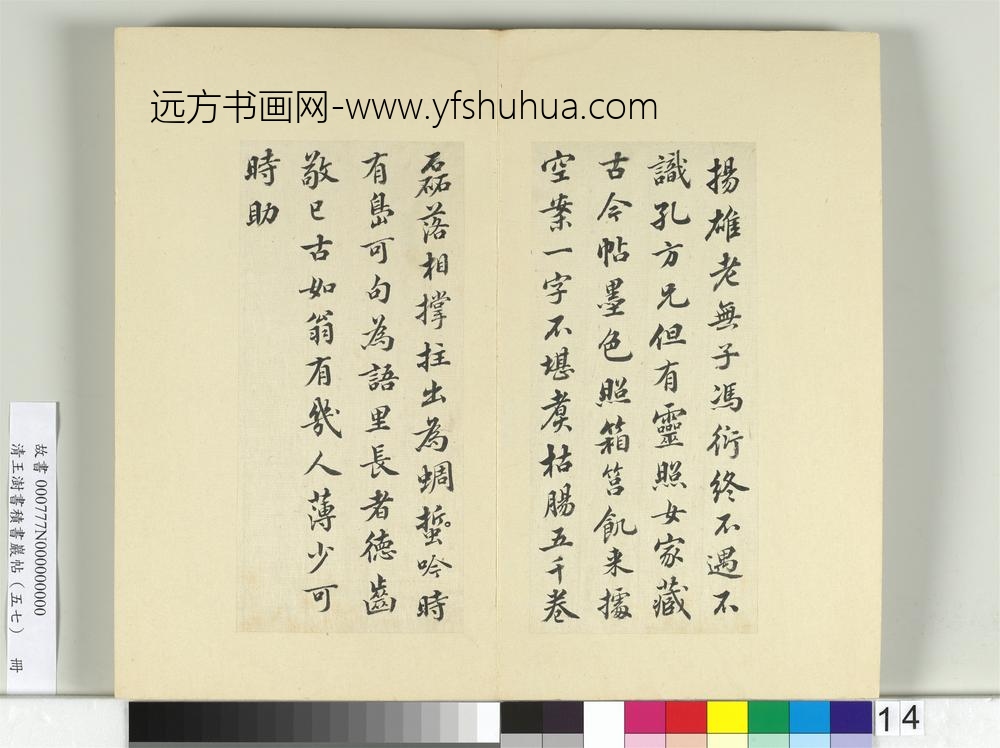 远方书画网-www.yfshuhua.com
揚雄老無子馮衍終不遇不
識孔方兄但有靈照女家藏
古今帖墨色照箱筥飢来據
空案一字不堪煑枯腸五千卷
磊落相撑拄出為蜩蜇吟時
有島可句為語里長者德齒
敬已古如翁有幾人薄少可
時助
故書 000777N000000000
清王澍書積書巖帖（五七） 冊
14